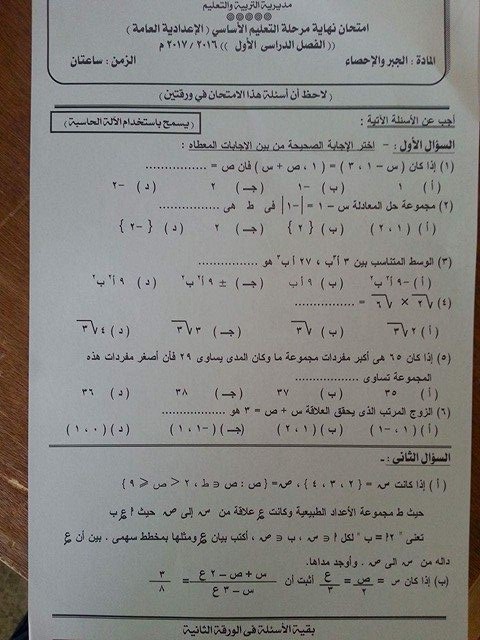 مديرية التربية والتعليم
امتحان نهاية مرحلة التعليم الأساسي ( الإعدادية العامة )
(( الفصل الدراسى الأول )) ٢٠١٦ / ٢٠١٧ م
المادة : الجبر والإحصاء الزمن : ساعتان
( لاحظ أن أسئلة هذا الامتحان في ورقتين )
أجب عن الأسئلة الآتية : ( يسمح باستخدام الآلة الحاسبة )
السؤال الأول : - اختر الإجابة الصحيحة من بين الاجابات المعطاه :
(١) إذا كان ( س – ١ ، ٣ ) = ( ١ ، ص + س ) فان ص = ................
( أ ) ١ ( ب ) –١ ( جـ ) ٢ ( د ) –٢
(٢) مجموعة حل المعادلة س – ١ = |–١| فى ط هى ................
( أ ) ( ١ ، ٢ ) ( ب ) { ٢ } ( جـ ) ٢ ( د ) { –٢ }
(٣) الوسط المتناسب بين ٣ أ٣ب ، ٢٧ أ ب٣ هو ................
( أ ) –٩ أ٢ ب٢ ( ب ) ٩ أ ب ( جـ ) ± ٩ أ٢ ب٢ ( د ) ٩ أ٢ ب٢
(٤) √٢ × √٦ = ................
( أ ) ٢√٣ ( ب ) √٣ ( جـ ) ٣√٣ ( د ) ٤√٣
(٥) إذا كان ٦٥ هى أكبر مفردات مجموعة ما وكان المدى يساوى ٢٩ فأن أصغر مفردات هذه
المجموعة تساوى ................
( أ ) ٣٥ ( ب ) ٣٧ ( جـ ) ٣٨ ( د ) ٣٦
(٦) الزوج المرتب الذى يحقق العلاقة س + ص = ٣ هو ................
( أ ) ( ١ ، –١ ) ( ب ) ( ١ ، ٢ ) ( جـ ) ( –١ ، ١ ) ( د ) ( ١ ، ٠ )
السؤال الثانى : -
( أ ) إذا كانت س = { ٢ ، ٣ ، ٤ } ، ص = { ص : ص ∈ ط ، ٢ < ص ⩽ ٩ }
حيث ط مجموعة الأعداد الطبيعية وكانت ع علاقة من س إلى ص حيث أ ع ب
تعنى " ٢أ = ب " لكل أ ∈ س ، ب ∈ ص ، أكتب بيان ع ومثلها بمخطط سهمى . بين أن ع
داله من س الى ص . وأوجد مداها.
(ب) إذا كان س = ص/٢ = ع/٣ أثبت أن (س + ص – ٢ ع)/(س – ٣ ع) = ٣/٨
بقية الأسئلة فى الورقة الثانية